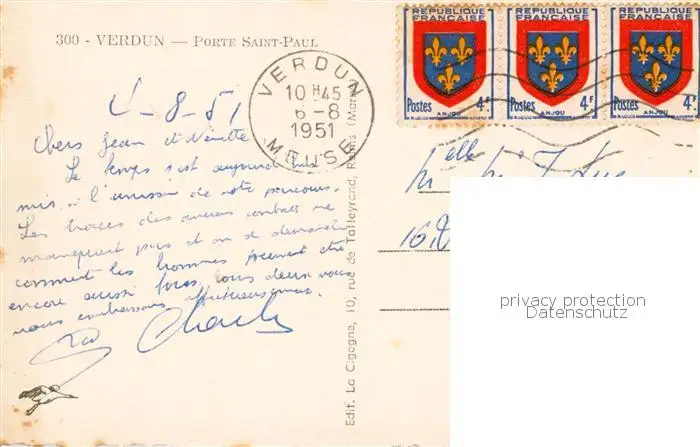 300 - VERDUN — PORTE SAINT-PAUL
VERDUN
10 H45
6-8
1951
MEUSE
REPUBLIQUE FRANÇAISE
Postes 4F
ANJOU
REPUBLIQUE FRANÇAISE
Postes 4F
ANJOU
REPUBLIQUE FRANÇAISE
Postes 4F
ANJOU
6-8-51
Chers Jean et Ninette
Le temps s'est aujourd'hui
mis à l'unisson de notre parcours.
Les traces des anciens combats ne
manquent pas et on se demande
comment les hommes peuvent être
encore aussi fous, tous deux vous
nous embrassons affectueusement.
Charles
Edit. La Cigogne, 10, rue de Talleyrand, Reims (Marne)
elle
16,
privacy protection
Datenschutz